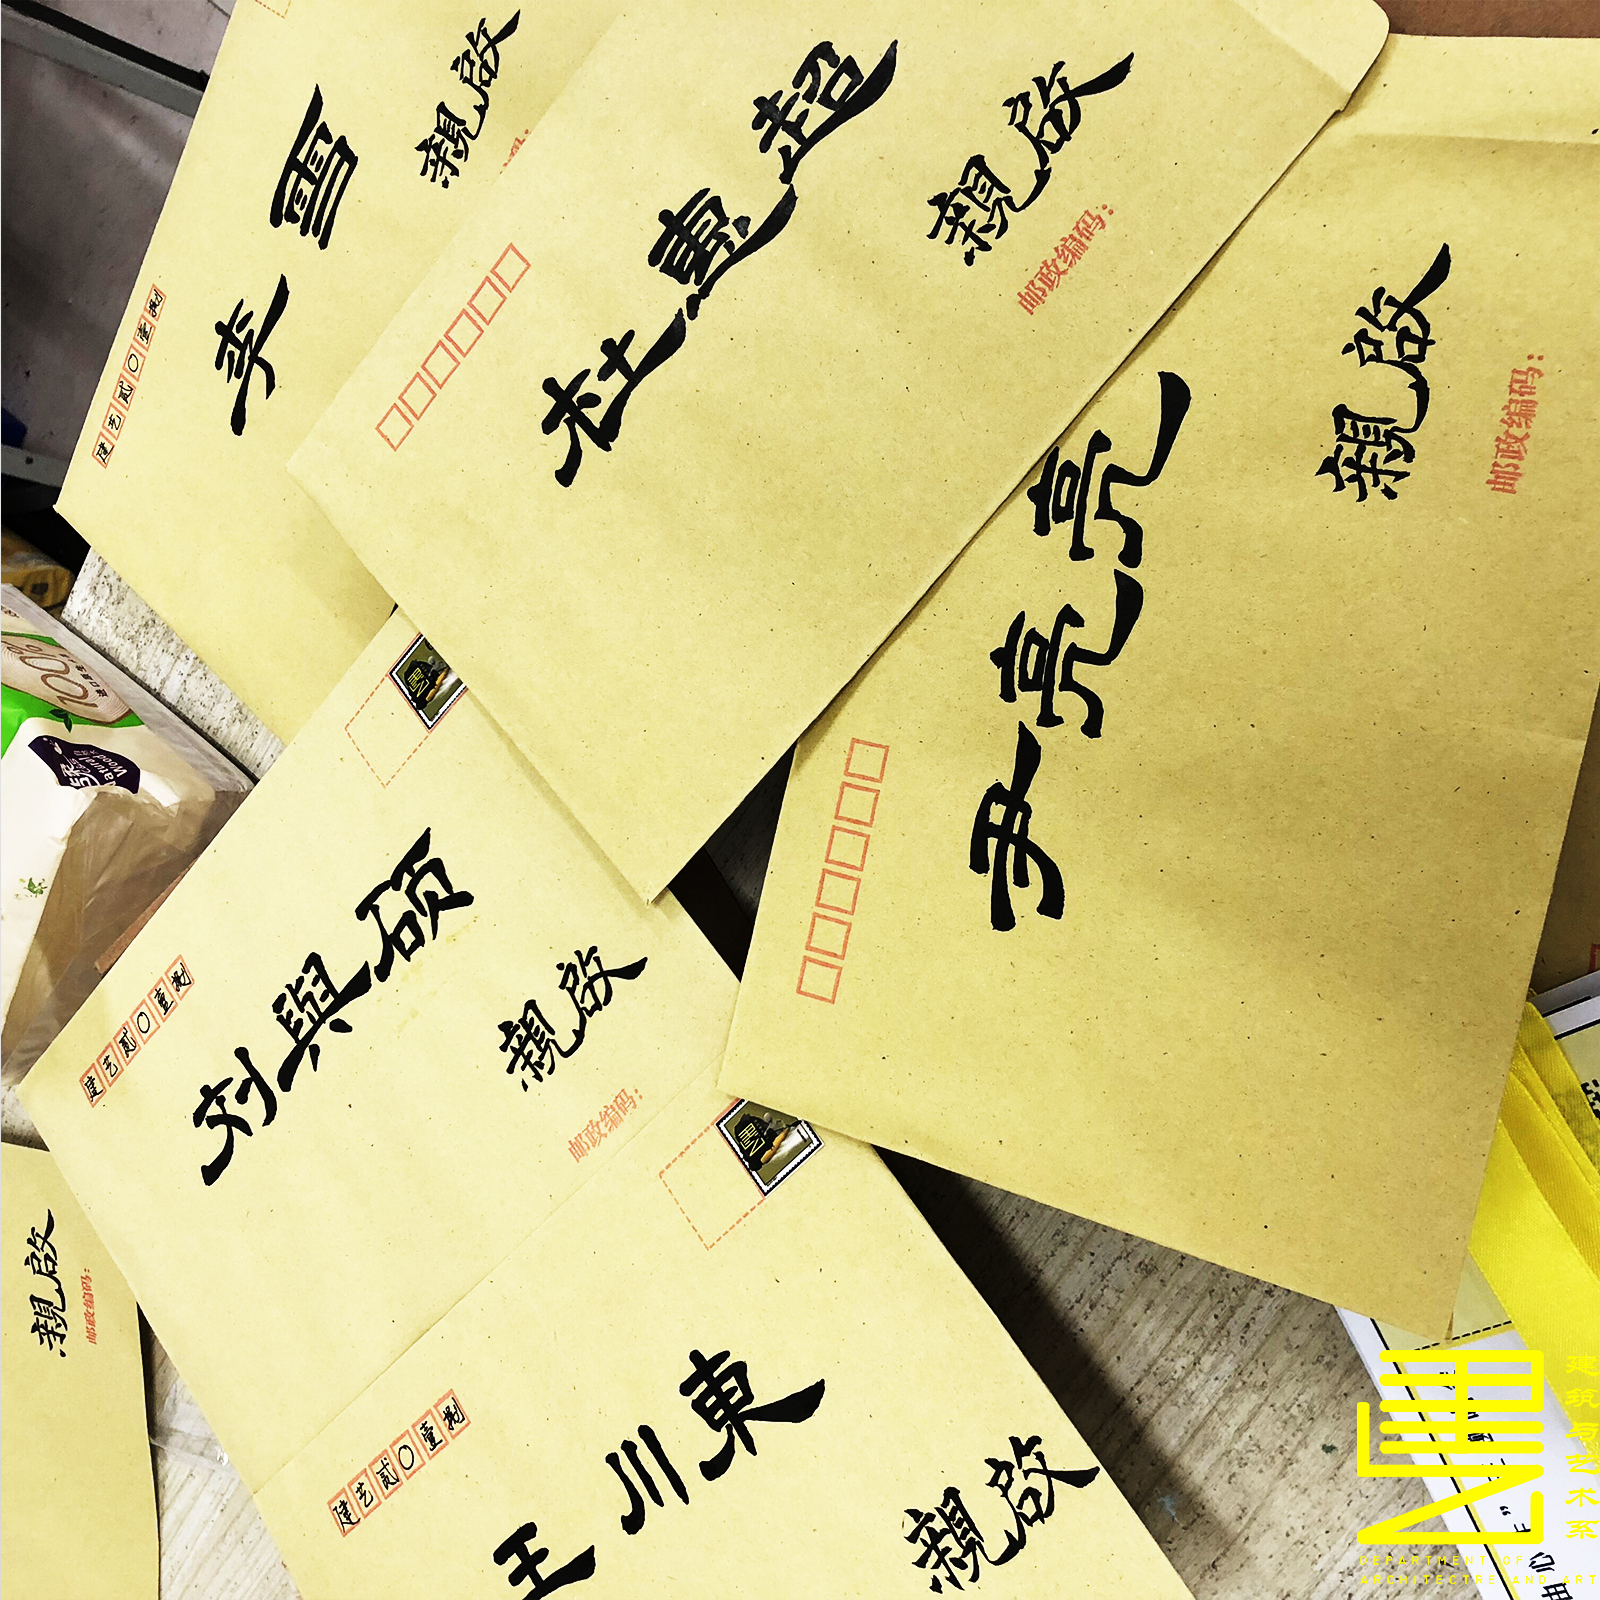 李雪
親啟
建艺贰〇壹捌
杜惠超
親啟
邮政编码：
尹亮亮
親啟
邮政编码：
刘與硕
親啟
建艺贰〇壹捌
邮政编码：
王川東
親啟
建艺贰〇壹捌
親啟
邮政编码：
100%
Natural
Wood
建筑与艺术系
DEPARTMENT OF
ARCHITECTRE AND ART